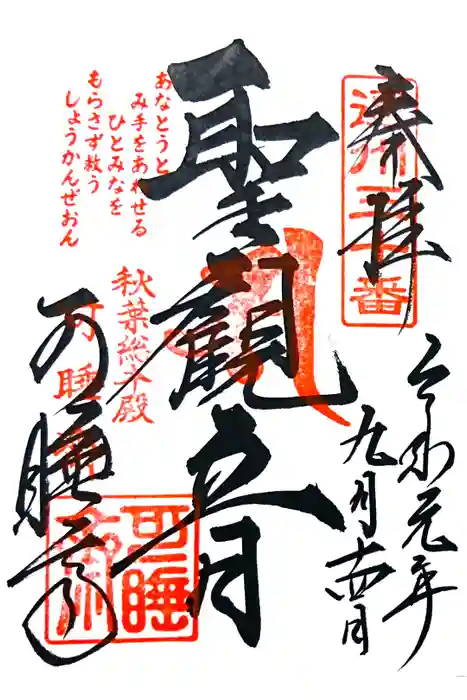 奉拝
令和元年
九月
聖觀音
あなとうと
み手をあわせる
ひとみなを
もらさず救う
しょうかんぜおん
秋葉総本殿
可睡斎
可睡斎